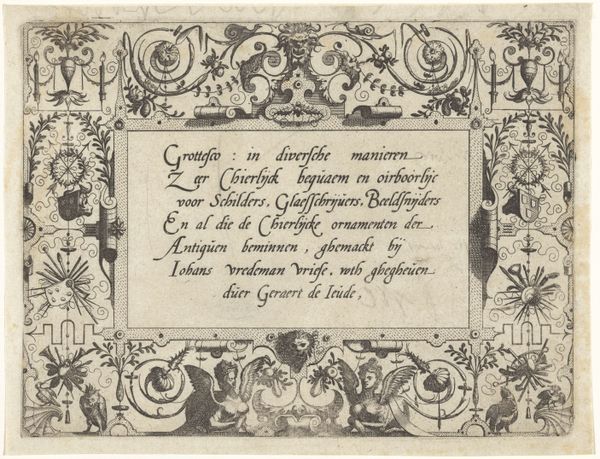 Grottesco : in diversche manieren
Zeer Chierlijck bequaem en oirboorlijc
voor Schilders, Glaesschrijuers, Beeldsnijders
En al die de Chierlijcke ornamenten der
Antiquen beminnen, ghemackt bij
Iohans vredeman vriese, wth ghegheuen
duer Geraert de Ieude,